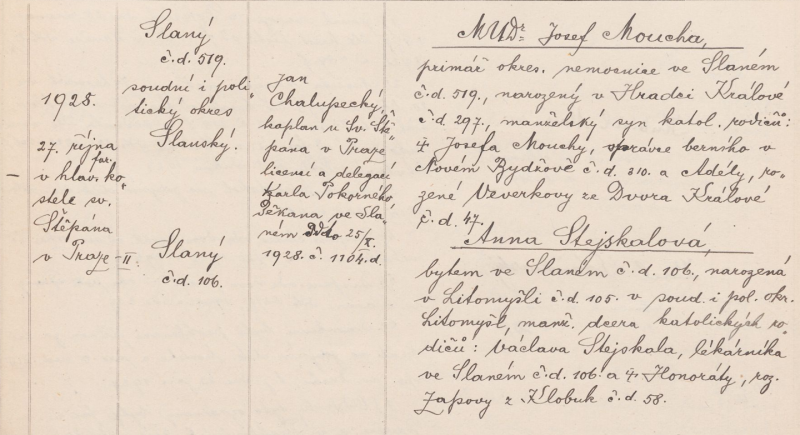 1928.
27. října
far.
v hlav. ko„
stele sv.
Štěpána
v Praze-II.
Slaný
č.d. 519.
soudní i poli„
tický okres
Slanský.
Slaný
č.d. 106.
Jan
Chalupecký,
kaplan u Sv. Ště„
pána v Praze
licencí a delegací
Karla Pokorného,
Děkana ve Sla„
ném ddo 25/X.
1928. č. 1104. d.
MUDr. Josef Moucha,
primář okres. nemocnice ve Slaném
č.d. 519., narozený v Hradci Králové
č.d. 297., manželský syn katol. rodičů:
☩ Josefa Mouchy, správce berního v
Novém Bydžově č.d. 310. a Adély, ro„
zené Veverkovy ze Dvora Králové
č.d. 47.
Anna Stejskalová,
bytem ve Slaném č.d. 106., narozená
v Litomyšli č.d. 105. v soud. i pol. okr.
Litomyšl, manž. dcera katolických ro„
dičů: Václava Stejskala, lékárníka
ve Slaném č.d. 106. a ☩ Honoráty, roz.
Zapovy z Klobuk č.d. 58.